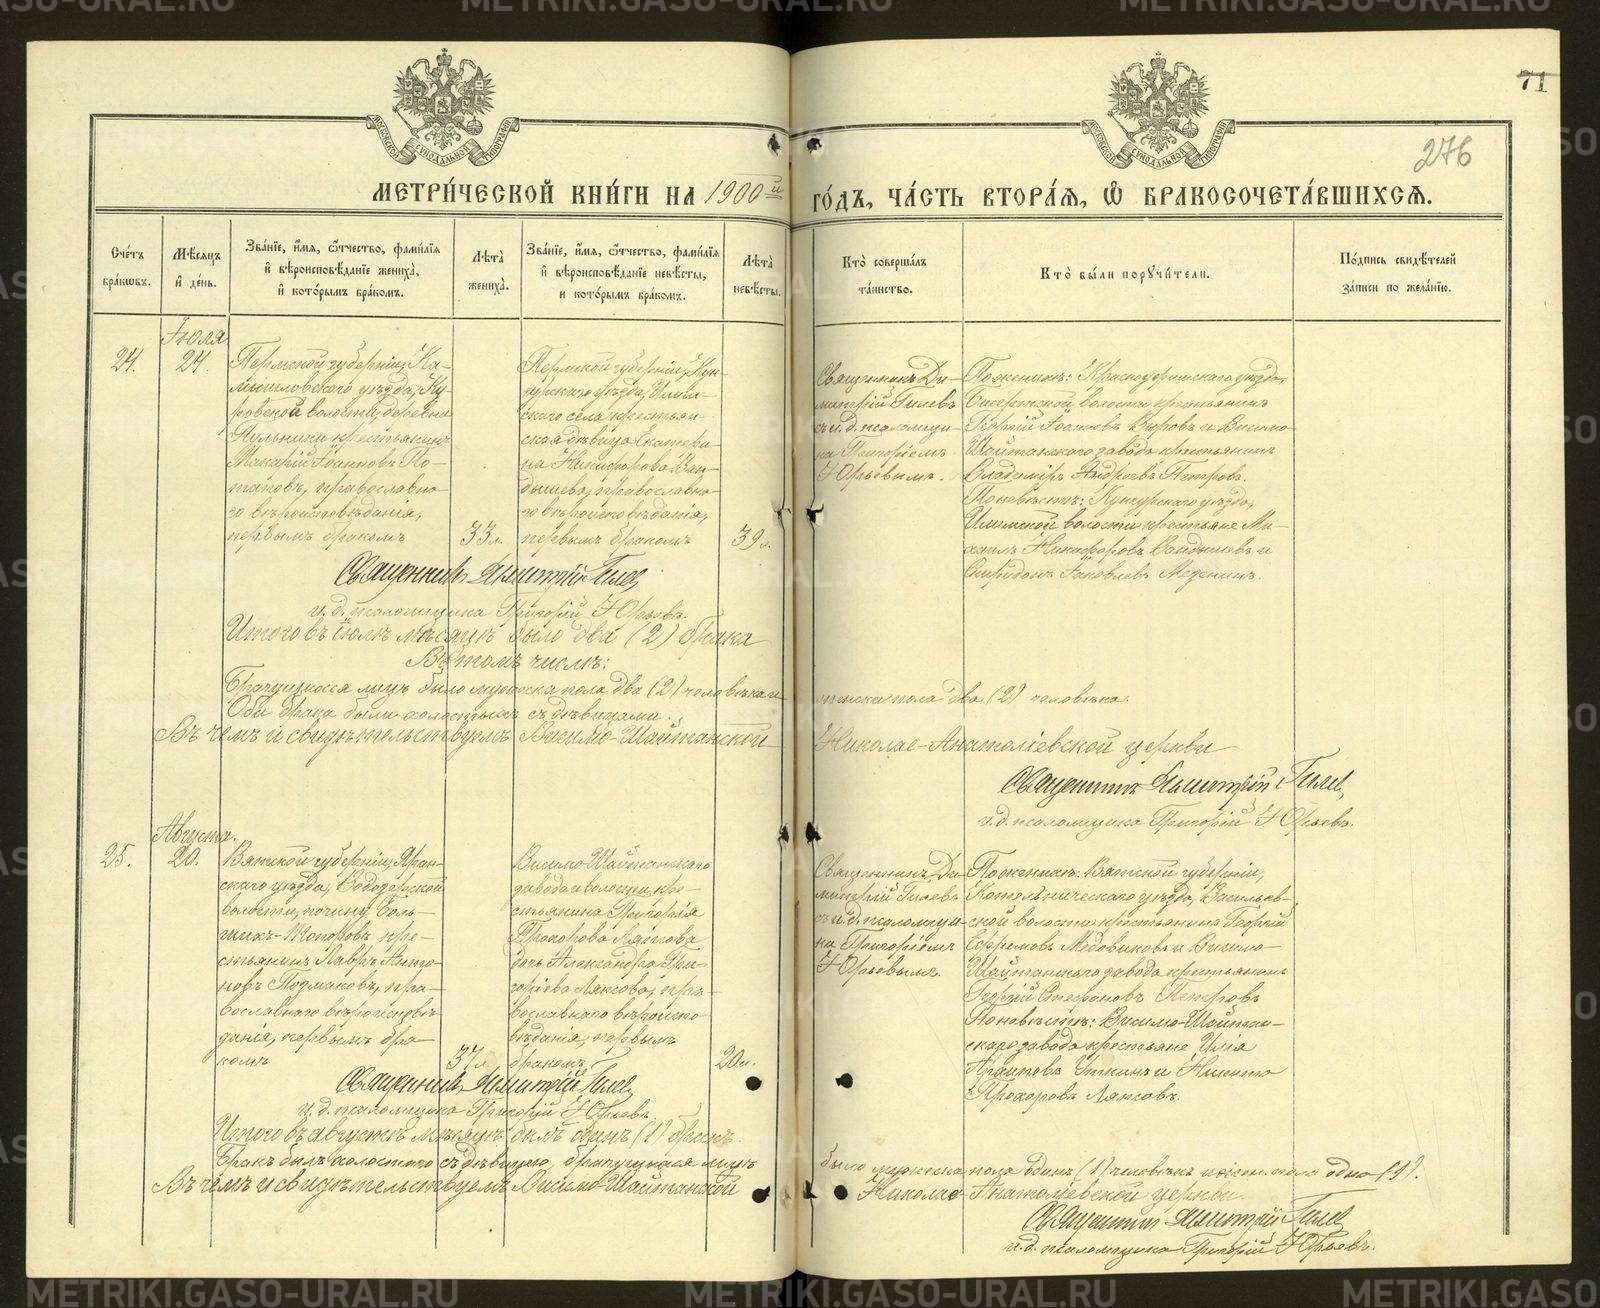 71
276
МЕТРИ́ЧЕСКОЙ КНИ́ГИ НА 1900й ГО́ДЪ, ЧА́СТЬ ВТОРА́Я, Ѿ БРАКОСОЧЕТА́ВШИХСЯ.
Сче́тъ бра́кѡвъ.
Мѣ́сяцъ и҆ де́нь.
Зва́нїе, и҆́мя, ѻ҆́тчество, фами́лїя и҆ вѣроисповѣ́данїе жениха̀, и҆ кото́рымъ бра́комъ.
Лѣ́та жениха̀.
Зва́нїе, и҆́мя, ѻ҆́тчество, фами́лїя и҆ вѣроисповѣ́данїе невѣ́сты, и кото́рымъ бра́комъ.
Лѣ́та невѣ́сты.
Кто̀ соверша́лъ та́инство.
Кто̀ бы́ли порꙋчи́тели.
По́дпись свидѣ́телей за́писи по жела́нїю.
Іюля
24.
24.
Пермской губерніи, Ка-
мышловскаго уѣзда, Ку-
ровской волости, деревни
Пульники крестьянинъ
Макарій Іоанновъ По-
таповъ, православна-
го вѣроисповѣданія,
первымъ бракомъ
33 л.
Пермской губерніи, Кун-
гурскаго уѣзда, Илим-
скаго села крестьян-
ская дѣвица Екатери-
на Никифорова Ван-
дышева, православна-
го вѣроисповѣданія,
первымъ бракомъ
39 л.
Священникъ Ди-
митрій Гилевъ
съ и. д. псаломщи-
ка Григоріемъ
Юрьевымъ.
По женихѣ: Красноуфимскаго уѣзда,
Бисертской волости крестьянинъ
Георгій Іоанновъ Вировъ и Висимо-
Шайтанскаго завода крестьянинъ
Владиміръ Петровъ.
По невѣстѣ: Кунгурскаго уѣзда,
Илимской волости крестьяне Ми-
хаилъ Никифоровъ Вандышевъ и
Спиридонъ Іаковлевъ Меденинъ.
Священникъ Димитрій Гилевъ
и. д. псаломщика Григорій Юрьевъ.
Итого въ іюлѣ мѣсяцѣ было два (2) брака
Въ томъ числѣ:
Брачущихся лицъ было мужеска пола два (2) человѣка и
женска пола два (2) человѣка.
Оба брака были холостыхъ съ дѣвицами.
Въ чемъ и свидѣтельствуемъ Висимо-Шайтанской
Николае-Анатоліевской церкви
Священникъ Димитрій Гилевъ
и. д. псаломщика Григорій Юрьевъ.
Августа.
25.
20.
Вятской губерніи, Яран-
скаго уѣзда, Водозерской
волости, починку Боль-
шихъ-Топоровъ кре-
стьянинъ Лавръ Анто-
новъ Подмаковъ, пра-
вославнаго вѣроисповѣ-
данія, первымъ бра-
комъ
37 л.
Висимо-Шайтанскаго
завода и волости, кре-
стьянина Григорія
Прохорова Ляпсова
дочь Александра Гри-
горіева Ляпсова, пра-
вославнаго вѣроиспо-
вѣданія, первымъ
бракомъ
20 л.
Священникъ Ди-
митрій Гилевъ
съ и. д. псаломщи-
ка Григоріемъ
Юрьевымъ.
По женихѣ: Вятской губерніи,
Котельническаго уѣзда, Васильев-
ской волости крестьянинъ Георгій
Ефремовъ Медовиковъ и Висимо-
Шайтанскаго завода крестьянинъ
Георгій Стефановъ Петровъ
По невѣстѣ: Висимо-Шайтан-
скаго завода крестьяне Илія
Архиповъ Уткинъ и Никита
Прохоровъ Ляпсовъ.
Священникъ Димитрій Гилевъ
и. д. псаломщика Григорій Юрьевъ.
Итого въ августѣ мѣсяцѣ былъ одинъ (1) бракъ.
Бракъ былъ холостого съ дѣвицею, брачущихся лицъ
было мужеска пола одинъ (1) человѣкъ и женск. пола одна (1).
Въ чемъ и свидѣтельствуемъ Висимо-Шайтанской
Николае-Анатоліевской церкви.
Священникъ Димитрій Гилевъ
и. д. псаломщика Григорій Юрьевъ.
METRIKI.GASO-URAL.RU